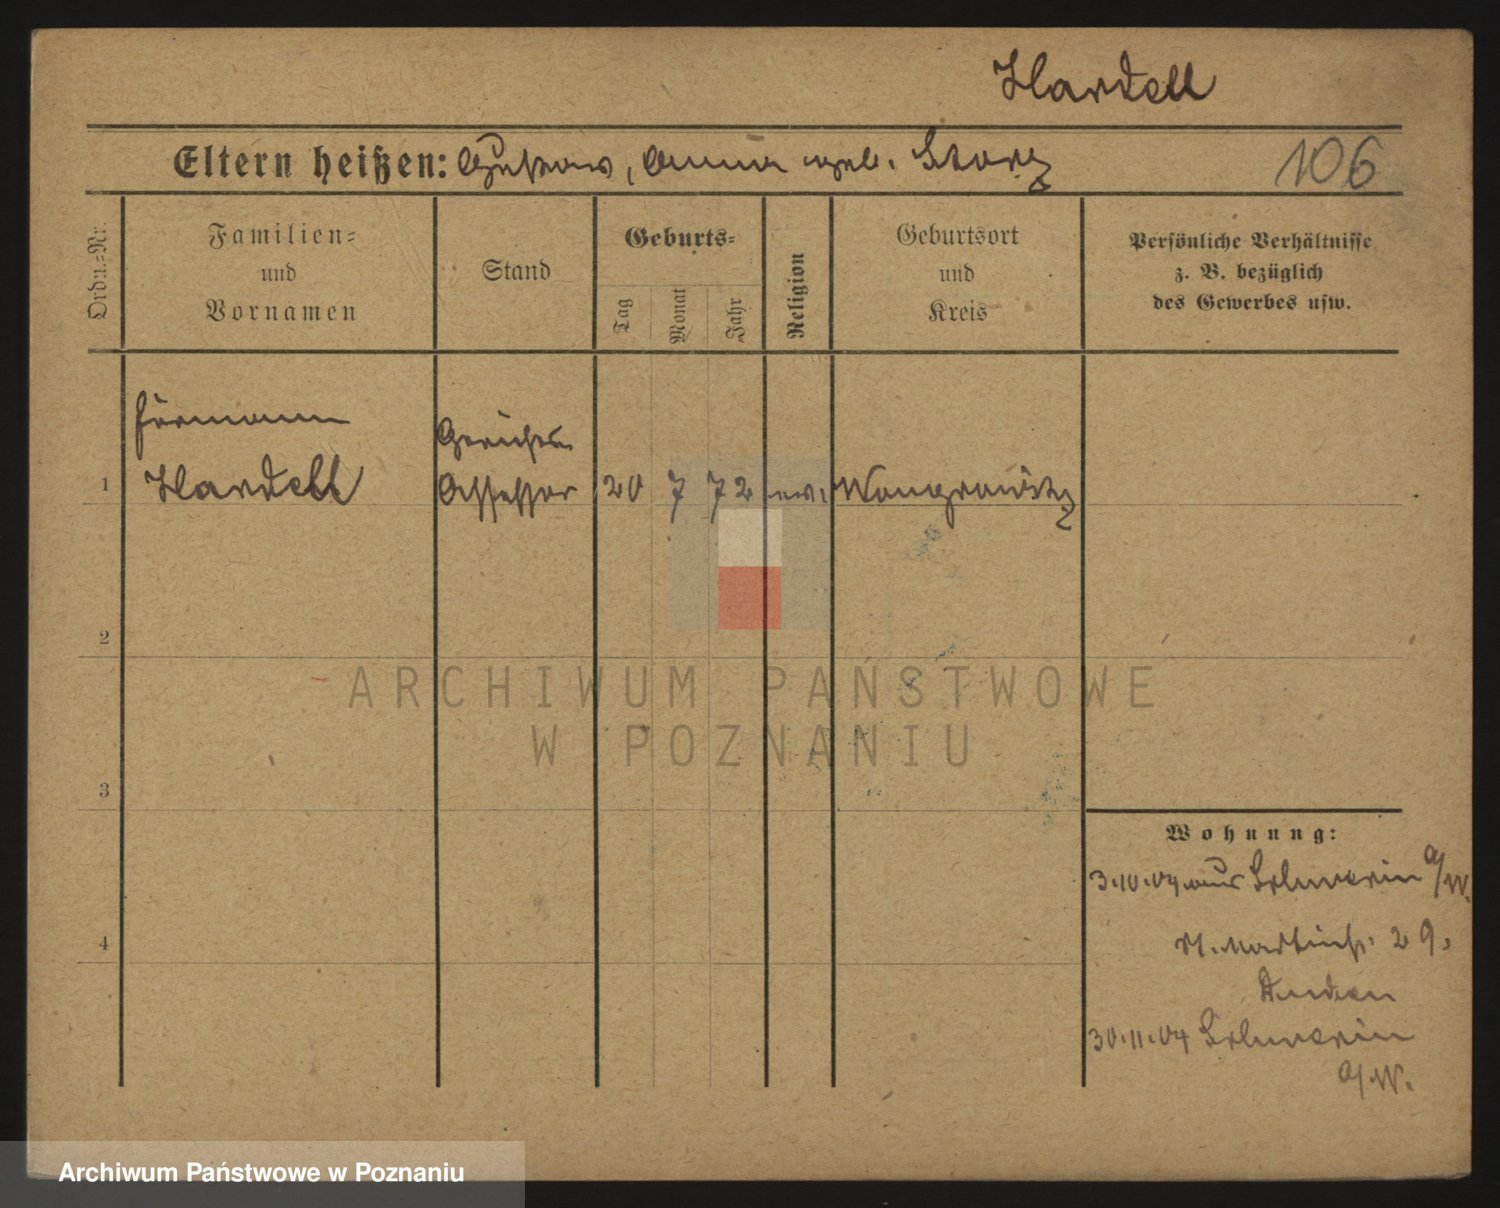 Hardell
Eltern heißen: Gustav, Anna geb. Storz
106
Ordn.-Nr.
Familien-
und
Vornamen
Stand
Geburts-
Tag
Monat
Jahr
Religion
Geburtsort
und
Kreis
Persönliche Verhältnisse
z. B. bezüglich
des Gewerbes usw.
Hermann
Gerichts-
1 Hardell Assessor 20 7 72 ev. Wongrowitz
2
3
4
ARCHIWUM PAŃSTWOWE
W POZNANIU
Wohnung:
3.10.04 aus Schwerin a/W.
St. Martinstr. 29.
30.11.04 Schwerin
a/W.
Archiwum Państwowe w Poznaniu